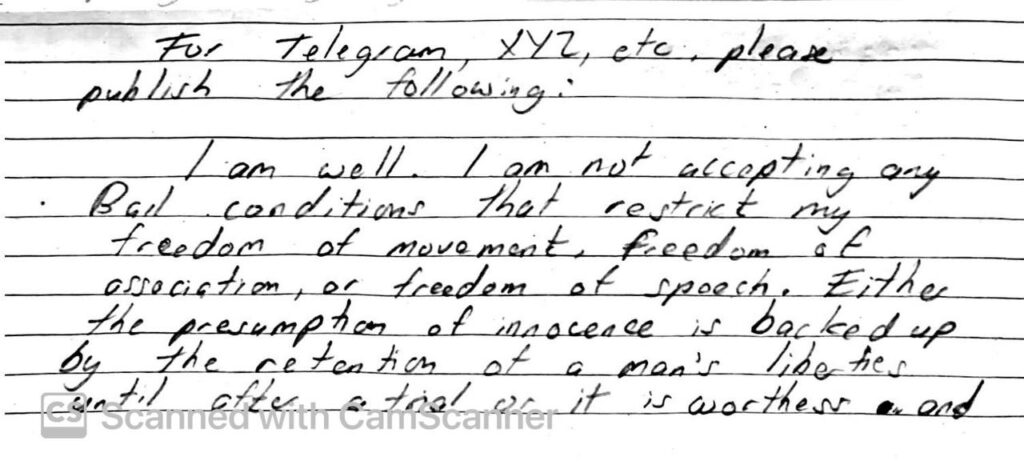 For Telegram, XYZ, etc, please
publish the following:
I am well. I am not accepting any
Bail conditions that restrict my
freedom of movement, freedom of
association, or freedom of speech. Either
the presumption of innocence is backed up
by the retention of a man's liberties
until after a trial or it is worthess and
CS Scanned with CamScanner